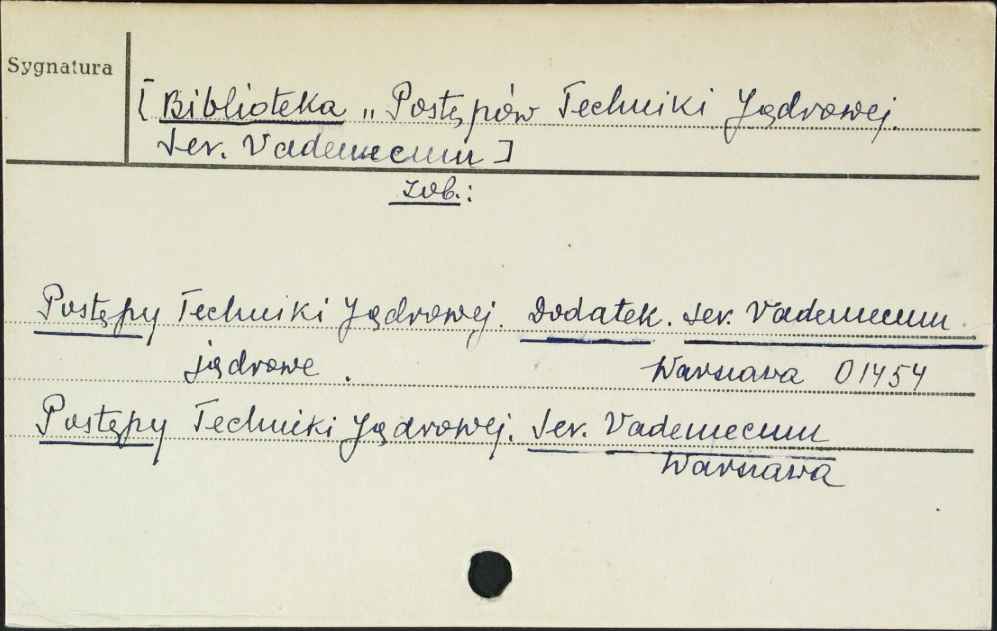 Sygnatura
[Biblioteka „Postępów Techniki Jądrowej.
Ser. Vademecum]
zob.:
Postępy Techniki Jądrowej. Dodatek. Ser. Vademecum
jądrowe. Warszawa 01454
Postępy Techniki Jądrowej. Ser. Vademecum
Warszawa